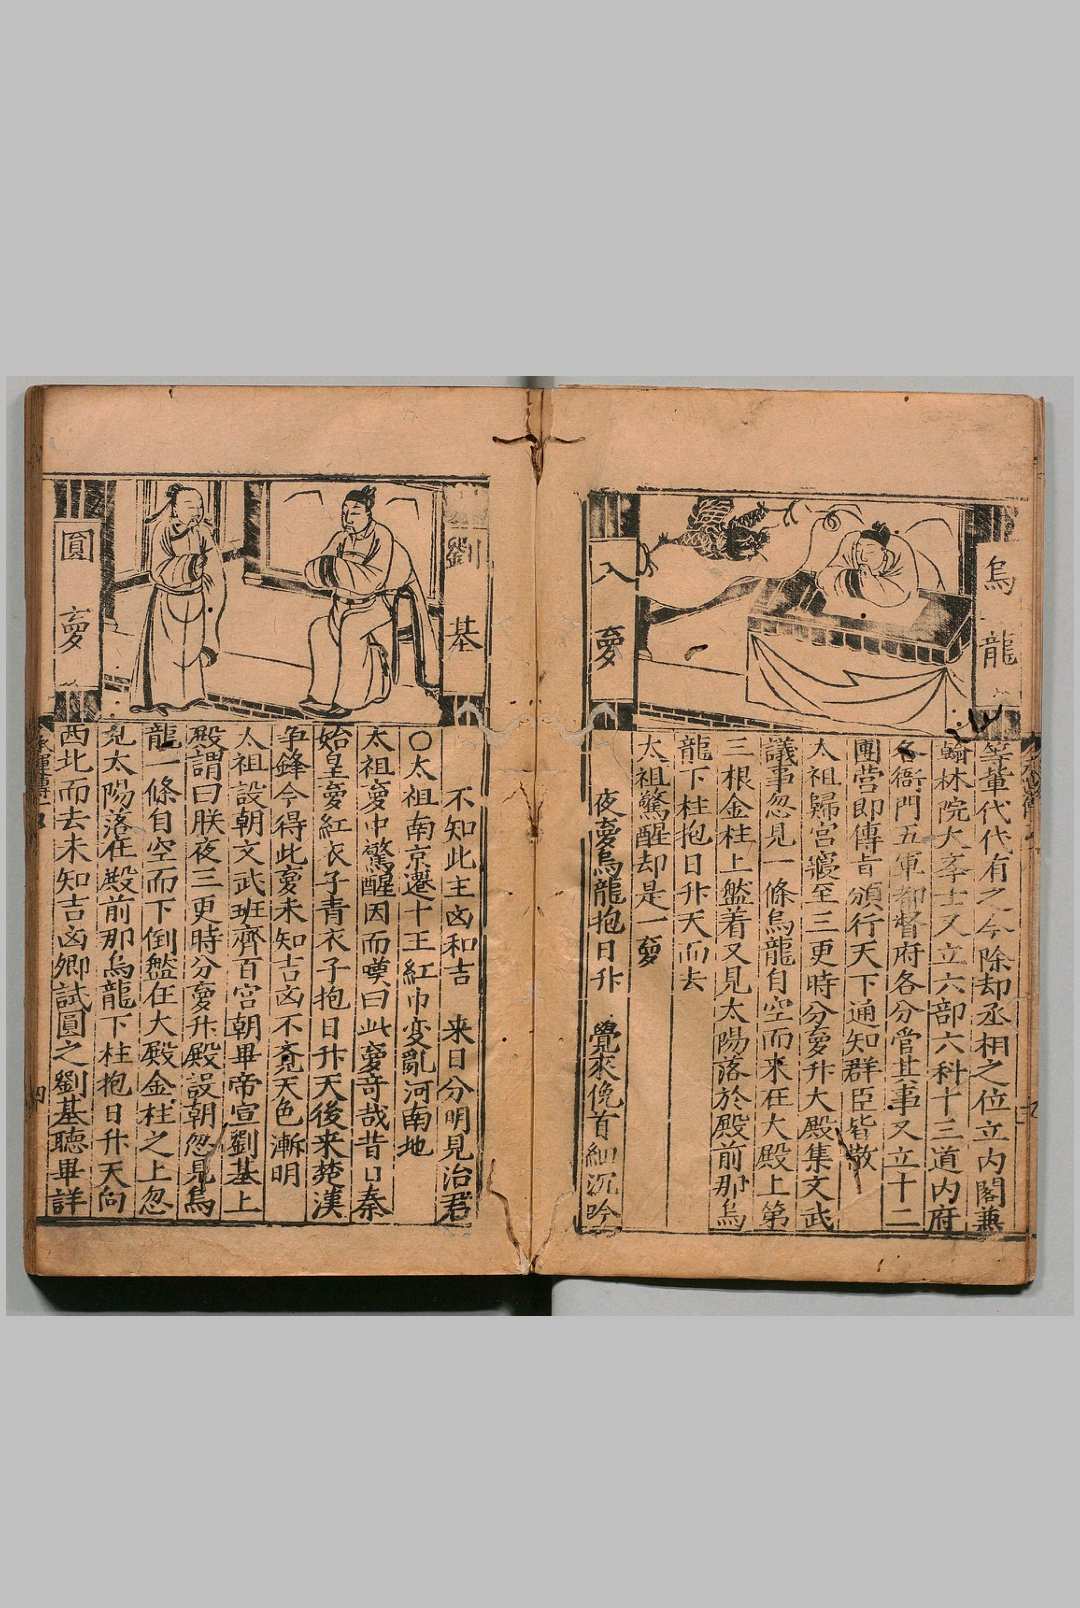 烏龍
入夢
等輩代代有之今除却丞相之位立内閣兼
翰林院大李士又立六部六科十三道内府
各衙門五軍都督府各分管其事又立十二
團营即傳旨頒行天下通知群臣皆散
太祖歸宫寢至三更時分夢升大殿集文武
議事忽見一條烏龍自空而来在大殿上第
三根金柱上盤着又見太陽落於殿前那烏
龍下柱抱日升天而去
太祖驚醒却是一夢
夜夢烏龍抱日升　覺來俛首細沉吟
劉基
圓夢
不知此主凶和吉　来日分明見治君
〇太祖南京遷十王紅巾变亂河南地
太祖夢中驚醒因而嘆曰此夢竒哉昔日秦
始皇夢紅衣子青衣子抱日升天後来楚漢
争鋒今得此夢未知吉凶不覔天色漸明
太祖設朝文武班齊百官朝畢帝宣劉基上
殿謂曰朕夜三更時分夢升殿設朝忽見烏
龍一條自空而下倒盤在大殿金柱之上忽
見太陽落在殿前那烏龍下柱抱日升天向
西北而去未知吉凶卿試圓之劉基聴畢詳
四